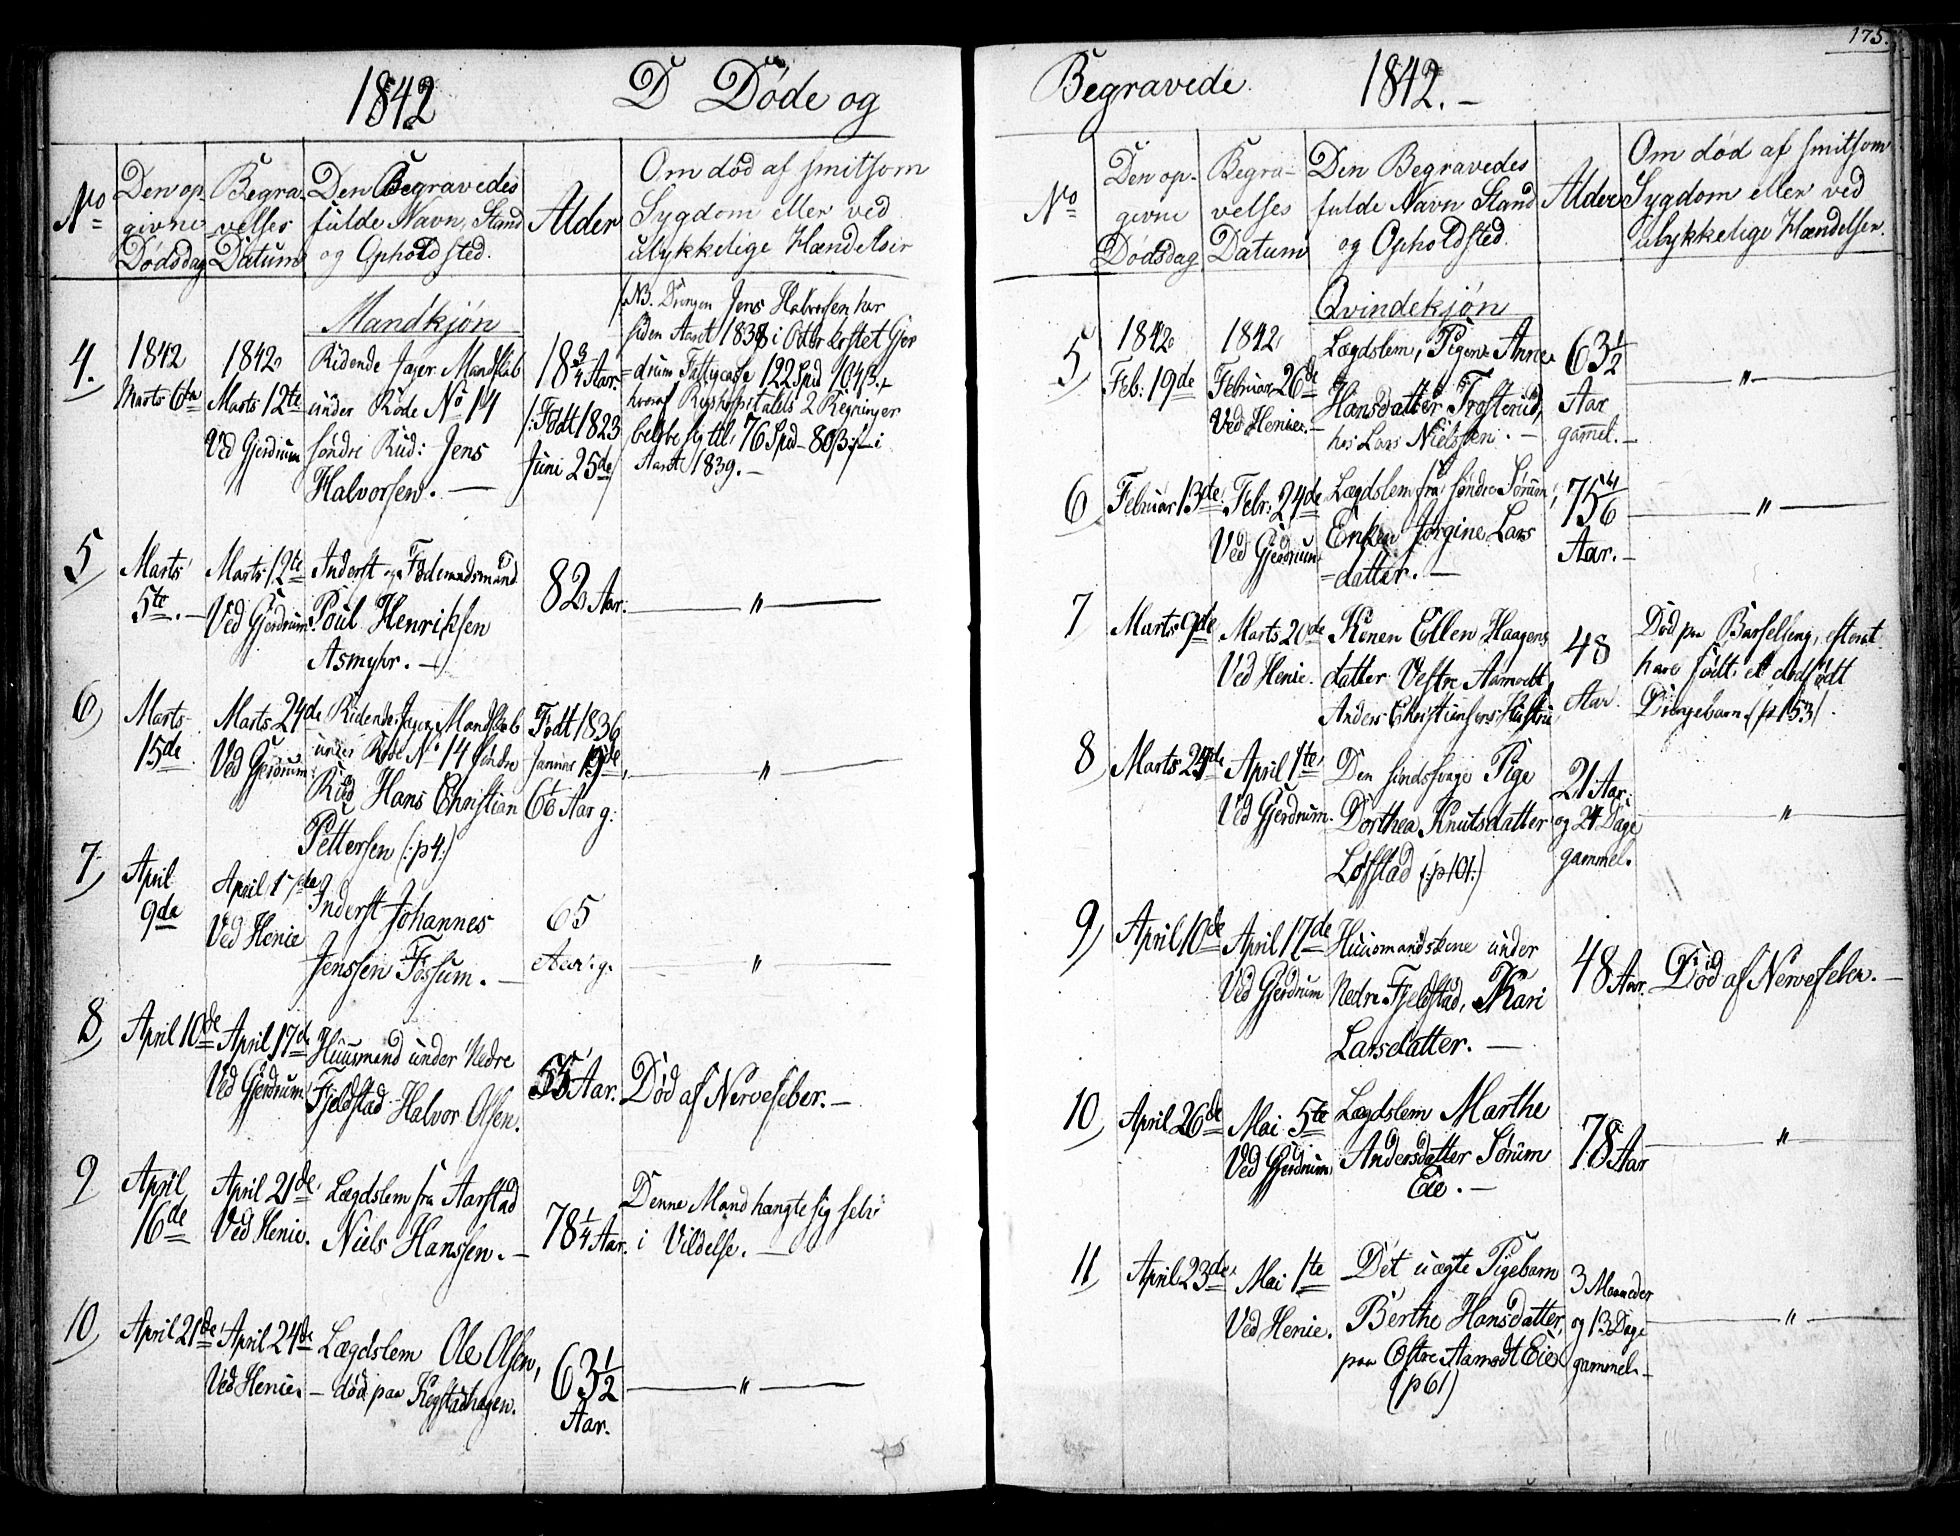 1842 D Døde og
No
Den op-
givne
Dødsdag
Begra-
velses
Datum
Den Begravedes
fulde Navn, Stand
og Opholdsted.
Alder
Om død af smitsom
Sygdom eller ved
ulykkelige Hændelser
Mandkjøn
4.
1842
Marts 6te
1842
Marts 12te
Ved Gjerdrum
Ridende Jæger Mandskab
under Rode No 14
søndre Rud: Jens
Halvorsen. —
18 3/4 Aar.
/: Født 1823
Juni 25de/
NB. Drengen Jens Halvorsen har
siden Aaret 1838 i Oter kostet Gjer
=drum Fattigcasse 122 Spd 104 β.
hvoraf Rigshospitalets 2 Regninger
beløbe sig til 76 Spd - 80 β i
Aaret 1839. —
5
Marts
5te. —
Marts 12te
Ved Gjerdrum
Inderst og Födemadsmand
Poul Henriksen
Asmyhr. —
82 Aar.
— " —
6
Marts
15de
Marts 24de
Ved Gjerdrum
Ridende Jæger Mandskab
under Rode No 14 søndre
Rud Hans Christian
Pettersen (:p 4:)
Født 1836
Januar 19de
6 Aar g:
— " —
7
April
9de
April 17de
Ved Henie
Inderst Johannes
Jenssen Fossum. —
65
Aar: g.
— " —
8
April 10de
April 17de
Ved Gjerdrum
Huusmand under Nedre
Fjeldstad Halvor Olsen.
55 Aar.
Død af Nervefeber. —
9
April
16de
April 21de
Ved Henie.
Lægdslem fra Aarstad
Niels Hanssen. —
78 1/4 Aar.
Denne Mand hængte sig selv
i Vildelse. —
10
April 21de
April 24de
Ved Henie.
Lægdslem Ole Olsen,
— død paa Kogstadhagen.
63 1/2
Aar.
— " —
175.
Begravede. 1842. —
No
Den op-
givne
Dødsdag
Begra-
velses
Datum
Den Begravedes
fulde Navn Stand
og Opholdsted.
Alder
Om død af smitsom
Sygdom eller ved
ulykkelige Hændelser.
Qvindekjøn
5
1842
Feb: 19de
1842
Februar 26de
Ved Henie. —
Lægdslem, Pigen Anne
Hansdatter Trosterud,
hos Lars Nielssen. —
63 1/2
Aar
gamel. —
— " —
6
Februar 13de
Febr: 24de
Ved Gjerdrum
Lægdslem fra søndre Sørum,
Enken Jørgine Lars
=datter. —
75 4/6
Aar. —
— " —
7
Marts 9de
Marts 20de
Ved Henie.
Konen Ellen Haagens
datter Vestre Aamodt
Anders Christiansens Hustru
48
Aar.
Død paa Barselseng, efterat
have født et dødfødt
Drengebarn (p 153).
8
Marts 24de
April 1te
Ved Gjerdrum.
Den sindssvage Pige
Dorthea Knutsdatter
Løfstad (:p 101:)
21 Aar
og 24 Dage
gammel.
— " —
9
April 10de
April 17de
Ved Gjerdrum
Huusmandskone under
Nedre Fjeldstad, Kari
Larsdatter. —
48 Aar.
Død af Nervefeber. —
10
April 26de
Mai 5te
Ved Gjerdrum
Lægdslem Marthe
Andersdatter Sørum
Eie. —
78 Aar
— " —
11
April 23de
Mai 1te
Ved Henie.
Det uægte Pigebarn
Berthe Hansdatter,
paa Østre Aamodt Eie
(p 61)
3 Maaneder
og 13 Dage
gammel. —
— " —